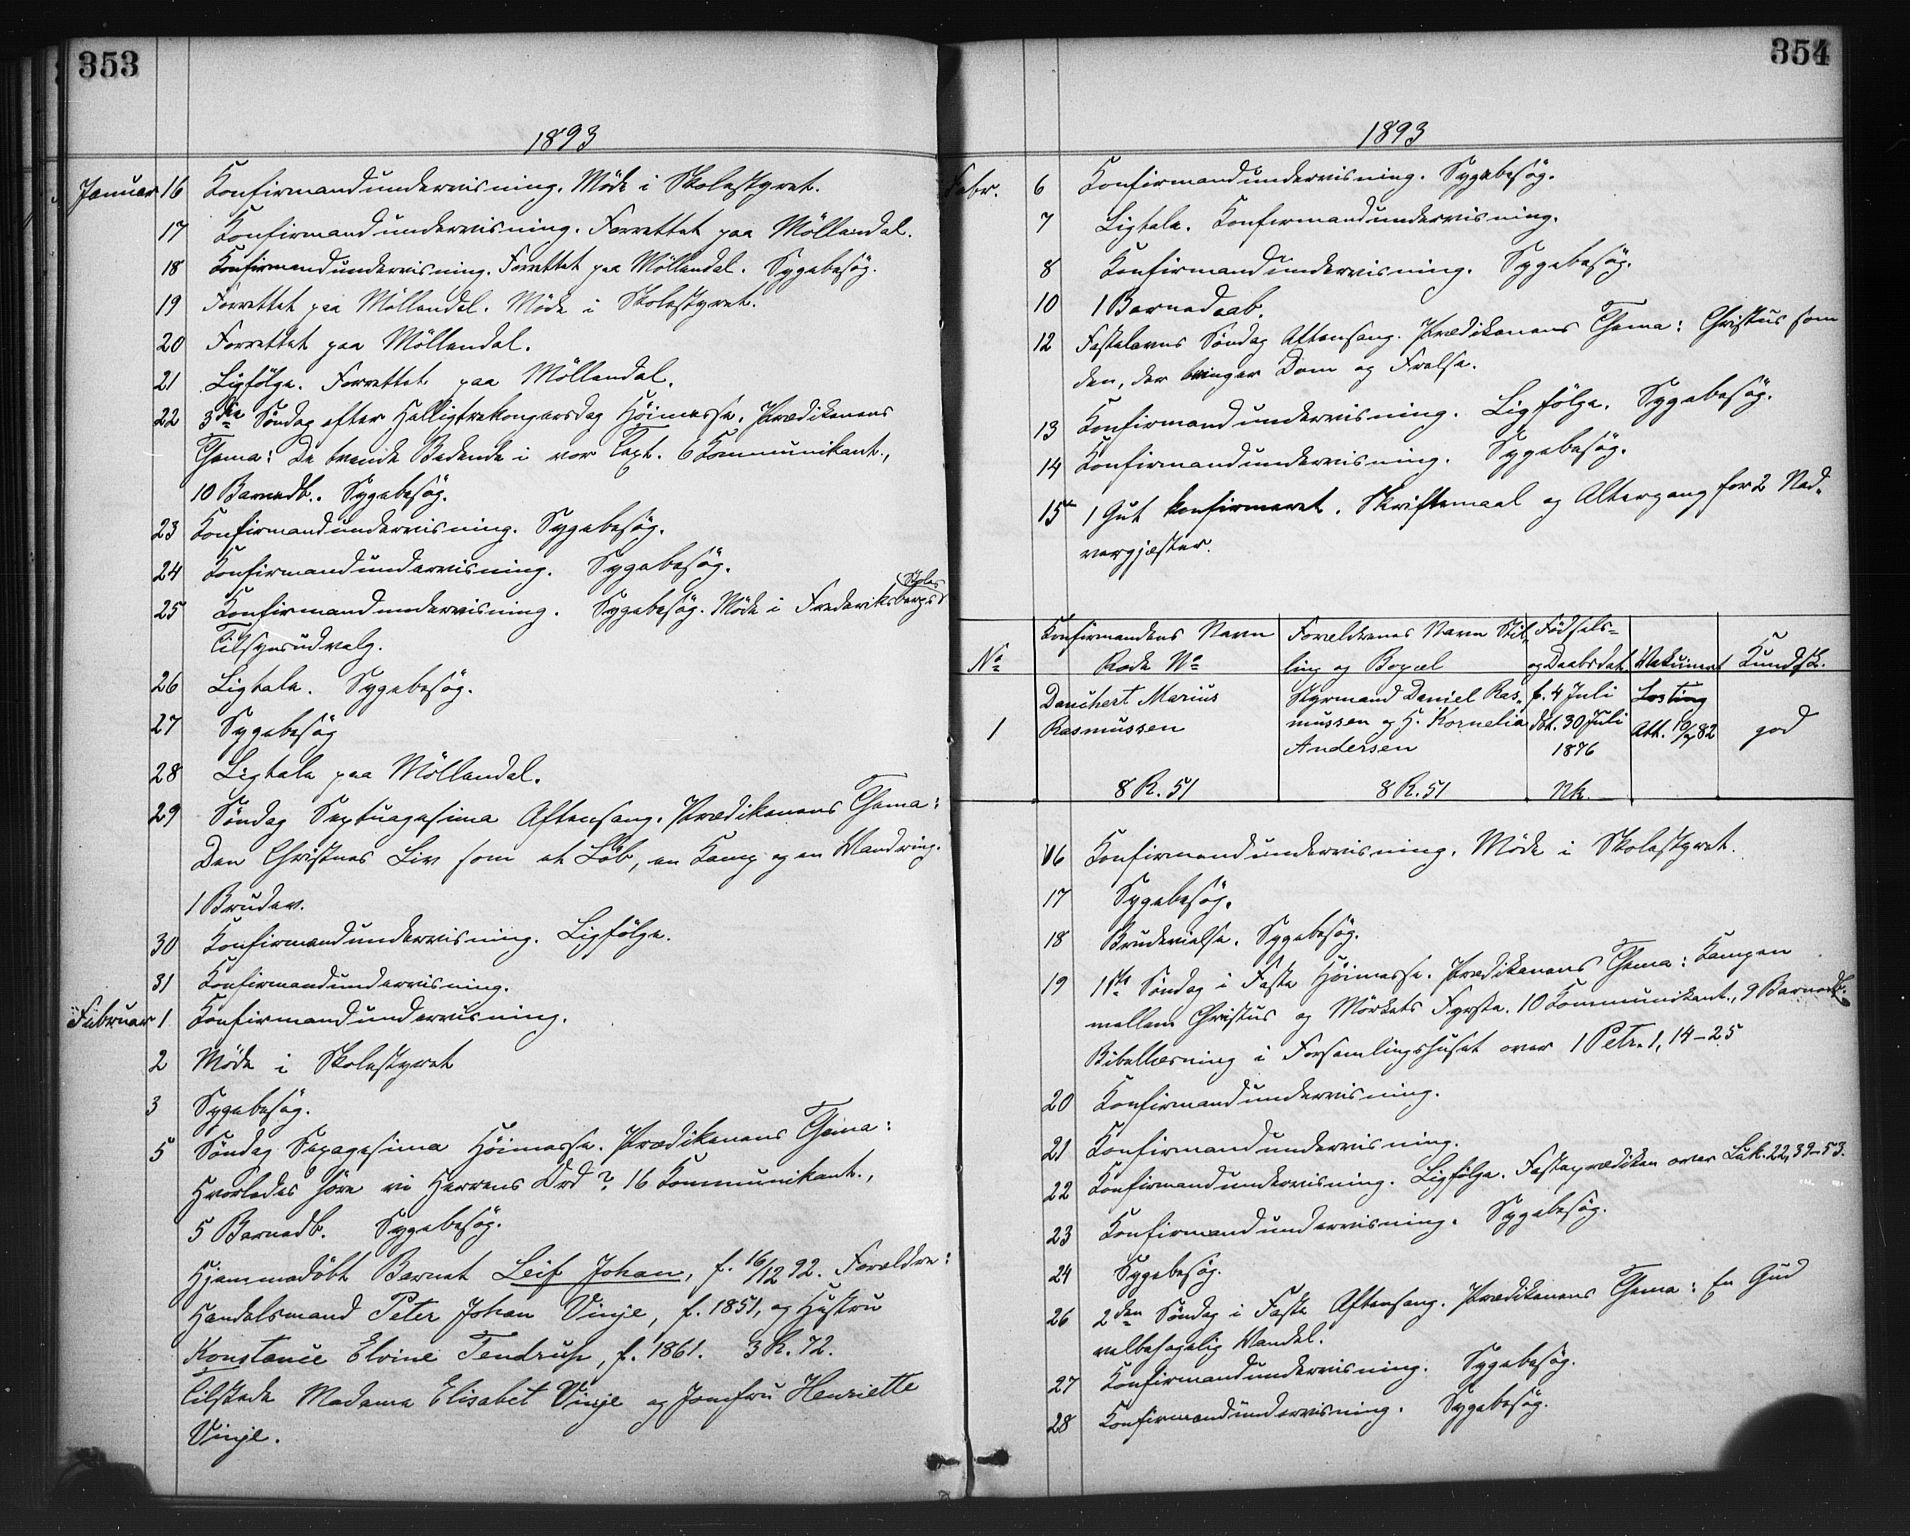 353
1893
Januar 16 Konfirmandundervisning. Möde i Skolestyret.
17 Konfirmandundervisning. Forrettet paa Möllendal.
18 Konfirmandundervisning. Forrettet paa Möllendal. Sygebesög.
19 Forrettet paa Möllendal. Möde i Skolestyret.
20 Forrettet paa Möllendal.
21 Ligfölge. Forrettet paa Möllendal.
22 3die Söndag efter Helligtrekongersdag Höimesse. Prædikenens
Thema: De tvende Bedende i vor Text. 6 Kommunikant.,
10 Barnedb. Sygebesög.
23 Konfirmandundervisning. Sygebesög.
24 Konfirmandundervisning. Sygebesög.
25 Konfirmandundervisning. Sygebesög. Möde i Frederiksbergs Skoles
Tilsynsudvalg.
26 Ligtale. Sygebesög.
27 Sygebesög
28 Ligtale paa Möllendal.
29 Söndag Septuagesima Aftensang. Prædikenens Thema:
Den Christnes Liv som et Löb, en Kamp og en Vandring.
1 Brudev.
30 Konfirmandundervisning. Ligfölge.
31 Konfirmandundervisning.
Februar 1 Konfirmandundervisning.
2 Möde i Skolestyret
3 Sygebesög.
5 Söndag Sexagesima Höimesse. Prædikenens Thema:
Hvorledes höre vi Herrens Ord? 16 Kommunikant.,
5 Barnedb. Sygebesög.
Hjemmedöbt Barnet Leif Johan, f. 16/12 92. Forældre:
Handelsmand Peter Johan Vinje, f. 1851, og Hustru
Konstance Elvine Tendrup, f. 1861. 3 R. 72.
Tilstede Madame Elisabet Vinje og Jomfru Henriette
Vinje.
354
1893
Febr. 6 Konfirmandundervisning. Sygebesög.
7 Ligtale. Konfirmandundervisning.
8 Konfirmandundervisning. Sygebesög.
10 1 Barnedaab.
12 Fastelavns Söndag Aftensang. Prædikenens Thema: Christus som
den, der bringer Dom og Frelse.
13 Konfirmandundervisning. Ligfölge. Sygebesög.
14 Konfirmandundervisning. Sygebesög.
15 1 Gut konfirmeret. Skriftemaal og Altergang for 2 Nad-
vergjæster.
No Konfirmandens Navn Rode No Forældrenes Navn Stilling og Bopæl Fødsels- og Daabsdat. Vakcineret Kundsk.
1 Danchert Marius Rasmussen Styrmand Daniel Rasmussen og H. Kornelia Andersen f. 4 Juli dbt. 30 Juli 1876 Att. 10/7 82 god
8 R. 51 8 R. 51 Nk.
16 Konfirmandundervisning. Möde i Skolestyret.
17 Sygebesög.
18 Brudevielse. Sygebesög.
19 1ste Söndag i Faste Höimesse. Prædikenens Thema: Kampen
mellem Christus og Mörkets Fyrste. 10 Kommunikant., 9 Barnedb.
Bibellæsning i Forsamlingshuset over 1 Petr. 1, 14-25
20 Konfirmandundervisning.
21 Konfirmandundervisning.
22 Konfirmandundervisning. Ligfölge. Fasteprædiken over Luk. 22, 39-53.
23 Konfirmandundervisning. Sygebesög.
24 Sygebesög.
26 2den Söndag i Faste Aftensang. Prædikenens Thema: En Gud
velbehagelig Vandel.
27 Konfirmandundervisning. Sygebesög.
28 Konfirmandundervisning. Sygebesög.